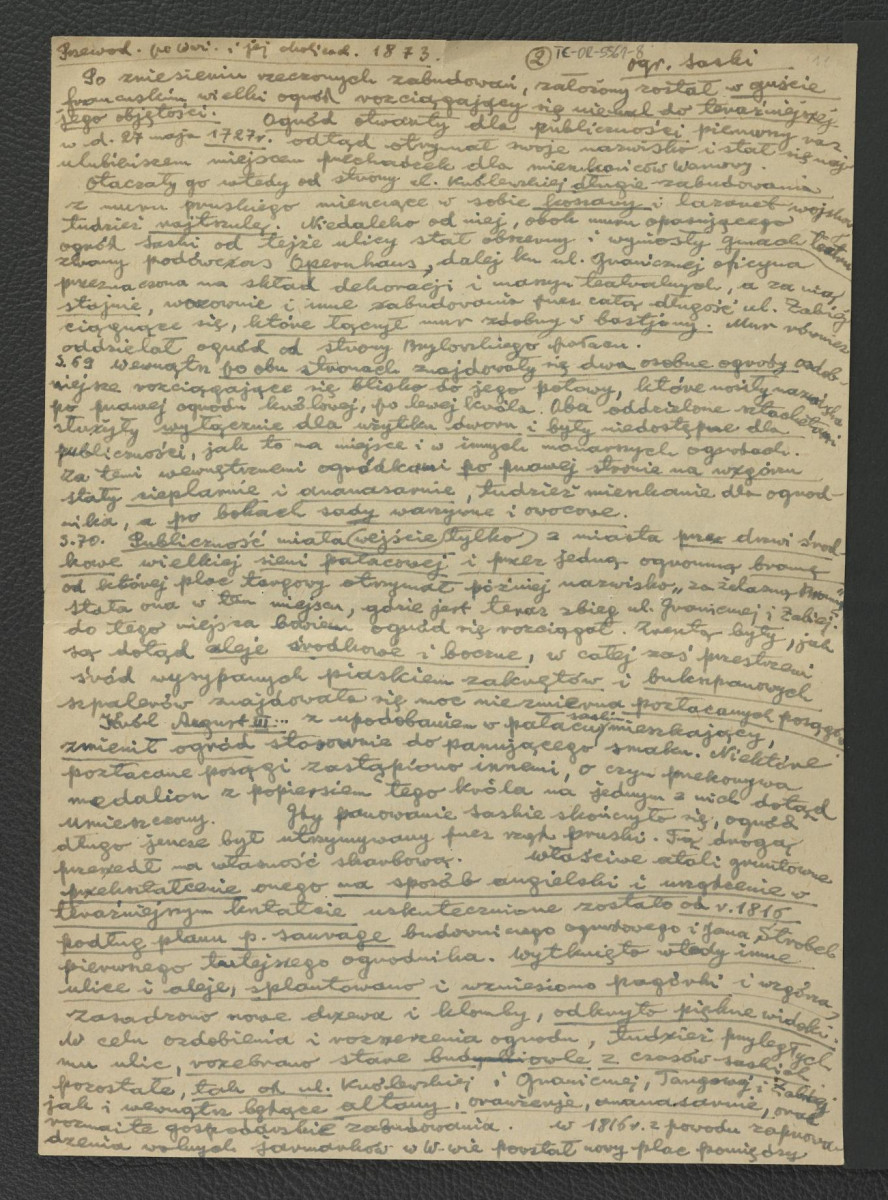 Przewod. po War. i jej okolicach. 1873.
② TE-OR-5561-8
ogr. Saski
Po zniesieniu rzeczonych zabudowań, założony został w guście
francuskim wielki ogród rozciągający się niemal do teraźniejszej
jego objętości. Ogród otwarty dla publiczności pierwszy raz
w d. 27 maja 1727r. odtąd otrzymał swoje nazwisko i stał się naj-
ulubieńszem miejscem przechadzek dla mieszkańców Warszawy.
Otaczały go wtedy od strony ul. Królewskiej długie zabudowania
z muru pruskiego mieszczące w sobie koszary i lazaret wojskowy
tudzież rajtszulę. Niedaleko od niej, obok muru opasującego
ogród Saski od tejże ulicy stał obszerny i wyniosły gmach teatru
zwany podówczas Opernhaus, dalej ku ul. Granicznej oficyna
przeznaczona na skład dekoracji i maszyn teatralnych, a za nią
stajnie, wozownie i inne zabudowania przez całą długość ul. Żabiej
ciągnące się, które łączył mur zdobny w bastjony. Mur również
oddzielał ogród od strony Brylowskiego pałacu.
S.69 Wewnątrz po obu stronach znajdowały się dwa osobne ogrody ozdob-
niejsze rozciągające się blisko do jego połowy, które nosiły nazwiska
po prawej ogrodu królowej, po lewej króla. Oba oddzielone sztachetami
służyły wyłącznie dla użytku dworu i były niedostępne dla
publiczności, jak to ma miejsce i w innych monarszych ogrodach.
Za temi wewnętrznemi ogródkami po prawej stronie na wzgórzu
stały cieplarnie i ananasarnie, tudzież mieszkanie dla ogrod-
nika, a po bokach sady warzywne i owocowe.
S.70. Publiczność miała wejście tylko z miasta przez drzwi środ-
kowe wielkiej sieni pałacowej i przez jedną ogromną bramę
od której plac targowy otrzymał później nazwisko „za żelazną bramą”
stała ona w tem miejscu, gdzie jest teraz zbieg ul. Granicznej i Żabiej.
do tego miejsca bowiem ogród się rozciągał. Zresztą były, jak
są dotąd aleje środkowe i boczne, w całej zaś przestrzeni
śród wysypanych piaskiem zakrętów i bukszpanowych
szpalerów znajdowała się moc niezmierna pozłacanych posągów.
Król August III... z upodobaniem w pałacu saskim mieszkający,
zmienił ogród stosownie do panującego smaku. Niektóre
pozłacane posągi zastąpiono innemi, o czym przekonywa
medalion z popiersiem tego króla na jednym z nich dotąd
umieszczony. Gdy panowanie saskie skończyło się, ogród
długo jeszcze był utrzymywany przez rząd pruski. Tą drogą
przeszedł na własność skarbową. Właściwe atoli gruntowne
przekształcenie onego na sposób angielski i urządzenie w
teraźniejszym kształcie uskutecznione zostało od r. 1816
podług planu p. Sauvage budowniczego ogrodowego i Jana Strobel
pierwszego tutejszego ogrodnika. Wytknięto wtedy inne
ulice i aleje, splantowano i wzniesiono pagórki i wzgórza,
zasadzono nowe drzewa i klomby, odkryto piękne widoki.
W celu ozdobienia i rozszerzenia ogrodu, tudzież przyległych
mu ulic, rozebrano stare budowle z czasów saskich
pozostałe, tak od ul. Królewskiej, i Granicznej, Targowej i Żabiej
jak i wewnątrz będące altany, oranżerje, ananasarnie, oraz
rozmaite gospodarskie zabudowania. W 1816r. z powodu zaprowa-
dzenia wolnych jarmarków w W-wie powstał nowy plac pomiędzy